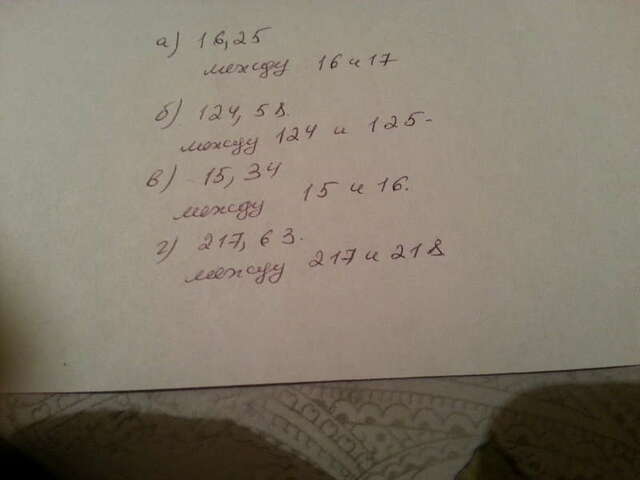 а) 16,25
между 16 и 17
б) 124,58.
между 124 и 125.
в) 15,34
между 15 и 16.
г) 217,63.
между 217 и 218